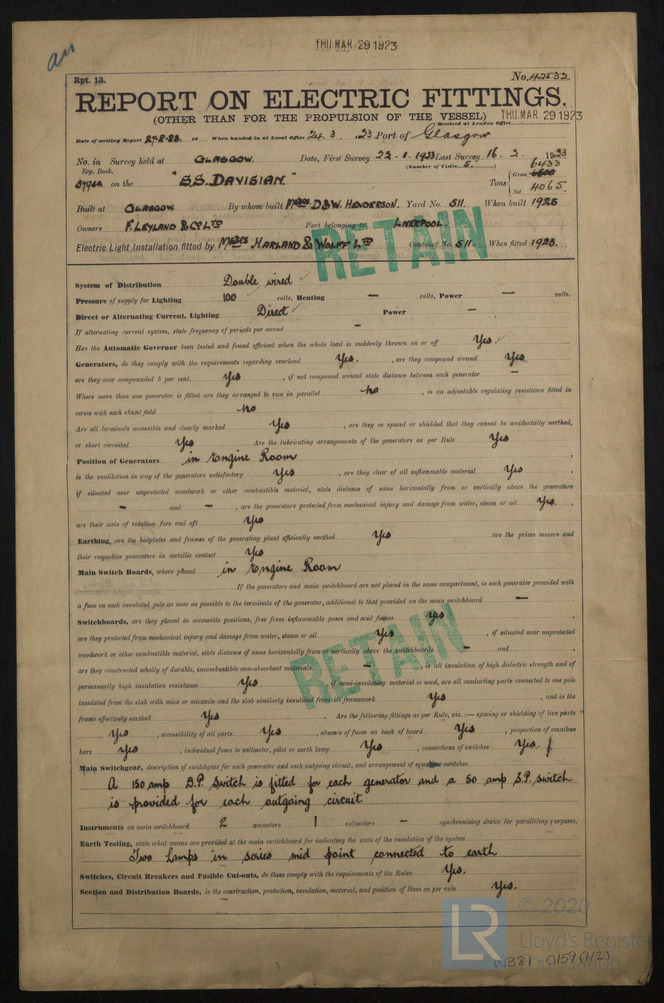 THU. MAR. 29 1923
Rpt. 13.
No. 42532
REPORT ON ELECTRIC FITTINGS.
(OTHER THAN FOR THE PROPULSION OF THE VESSEL)
THU. MAR. 29 1923
Received at London Office
Date of writing Report 27.3.23. 19 When handed in at Local Office 24. 3. 1923 Port of Glasgow
No. in Survey held at GLASGOW. Date, First Survey 22-1.1923 Last Survey 16. 2. 1923
Reg. Book. (Number of Visits 5.)
on the "S.S. DAVISIAN." Tons Gross 6433 Net 4065.
Built at GLASGOW By whom built Messrs D & W. HENDERSON. Yard No. 511. When built 1923
Owners F LEYLAND & Co LTD Port belonging to LIVERPOOL.
Electric Light Installation fitted by Messrs HARLAND & WOLFF LTD Contract No. 511. When fitted 1923.
RETAIN
System of Distribution Double wired
Pressure of supply for Lighting 100 volts, Heating — volts, Power — volts.
Direct or Alternating Current, Lighting Direct Power —
If alternating current system, state frequency of periods per second —
Has the Automatic Governor been tested and found efficient when the whole load is suddenly thrown on or off Yes.
Generators, do they comply with the requirements regarding overload Yes. , are they compound wound Yes
are they over compounded 5 per cent. Yes , if not compound wound state distance between each generator —
Where more than one generator is fitted are they arranged to run in parallel No , is an adjustable regulating resistance fitted in
series with each shunt field No
Are all terminals accessible and clearly marked Yes , are they so spaced or shielded that they cannot be accidentally earthed,
or short circuited Yes Are the lubricating arrangements of the generators as per Rule Yes
Position of Generators in Engine Room
is the ventilation in way of the generators satisfactory Yes , are they clear of all inflammable material Yes ,
if situated near unprotected woodwork or other combustible material, state distance of same horizontally from or vertically above the generators
— and — , are the generators protected from mechanical injury and damage from water, steam or oil Yes ,
are their axis of rotation fore and aft Yes
Earthing, are the bedplates and frames of the generating plant efficiently earthed Yes are the prime movers and
their respective generators in metallic contact Yes
Main Switch Boards, where placed in Engine Room
If the generators and main switchboard are not placed in the same compartment, is each generator provided with
a fuse on each insulated pole as near as possible to the terminals of the generator, additional to that provided on the main switchboard —
Switchboards, are they placed in accessible positions, free from inflammable gases and acid fumes Yes
are they protected from mechanical injury and damage from water, steam or oil Yes , if situated near unprotected
woodwork or other combustible material, state distance of same horizontally from or vertically above the switchboards — and ,
are they constructed wholly of durable, incombustible non-absorbent materials — , is all insulation of high dielectric strength and of
permanently high insulation resistance Yes , if semi-insulating material is used, are all conducting parts connected to one pole
insulated from the slab with mica or micanite and the slab similarly insulated from its framework Yes , and is the
frame effectively earthed Yes . Are the following fittings as per Rule, viz.:— spacing or shielding of live parts
Yes , accessibility of all parts Yes , absence of fuses on back of board Yes , proportion of omnibus
bars Yes , individual fuses to voltmeter, pilot or earth lamp Yes , connections of switches Yes.
RETAIN
Main Switchgear, description of switchgear for each generator and each outgoing circuit, and arrangement of equaliser switches
A 150 amp D.P. Switch is fitted for each generator and a 50 amp S.P. switch
is provided for each outgoing circuit
Instruments on main switchboard 2 ammeters 1 voltmeters — synchronising device for paralleling purposes.
Earth Testing, state what means are provided at the main switchboard for indicating the state of the insulation of the system
Two Lamps in series mid point connected to earth
Switches, Circuit Breakers and Fusible Cut-outs, do these comply with the requirements of the Rules Yes.
Section and Distribution Boards, is the construction, protection, insulation, material, and position of these as per rule Yes.
LR
© 2020
Lloyd's Register
Foundation
W381-0159(1/2)